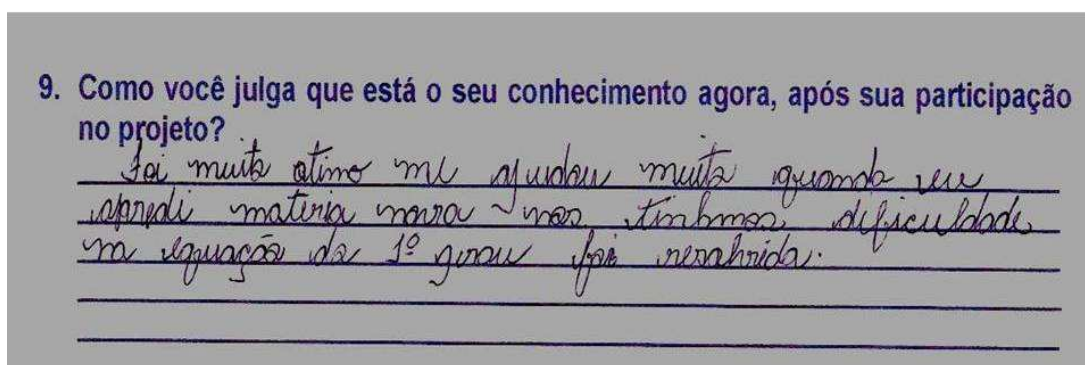 9. Como você julga que está o seu conhecimento agora, após sua participação
no projeto?
Foi muito otimo me ajudou muito quando eu
apredi materia nova nos tinhmos dificuldade
na equação do 1º grau foi resolvida.